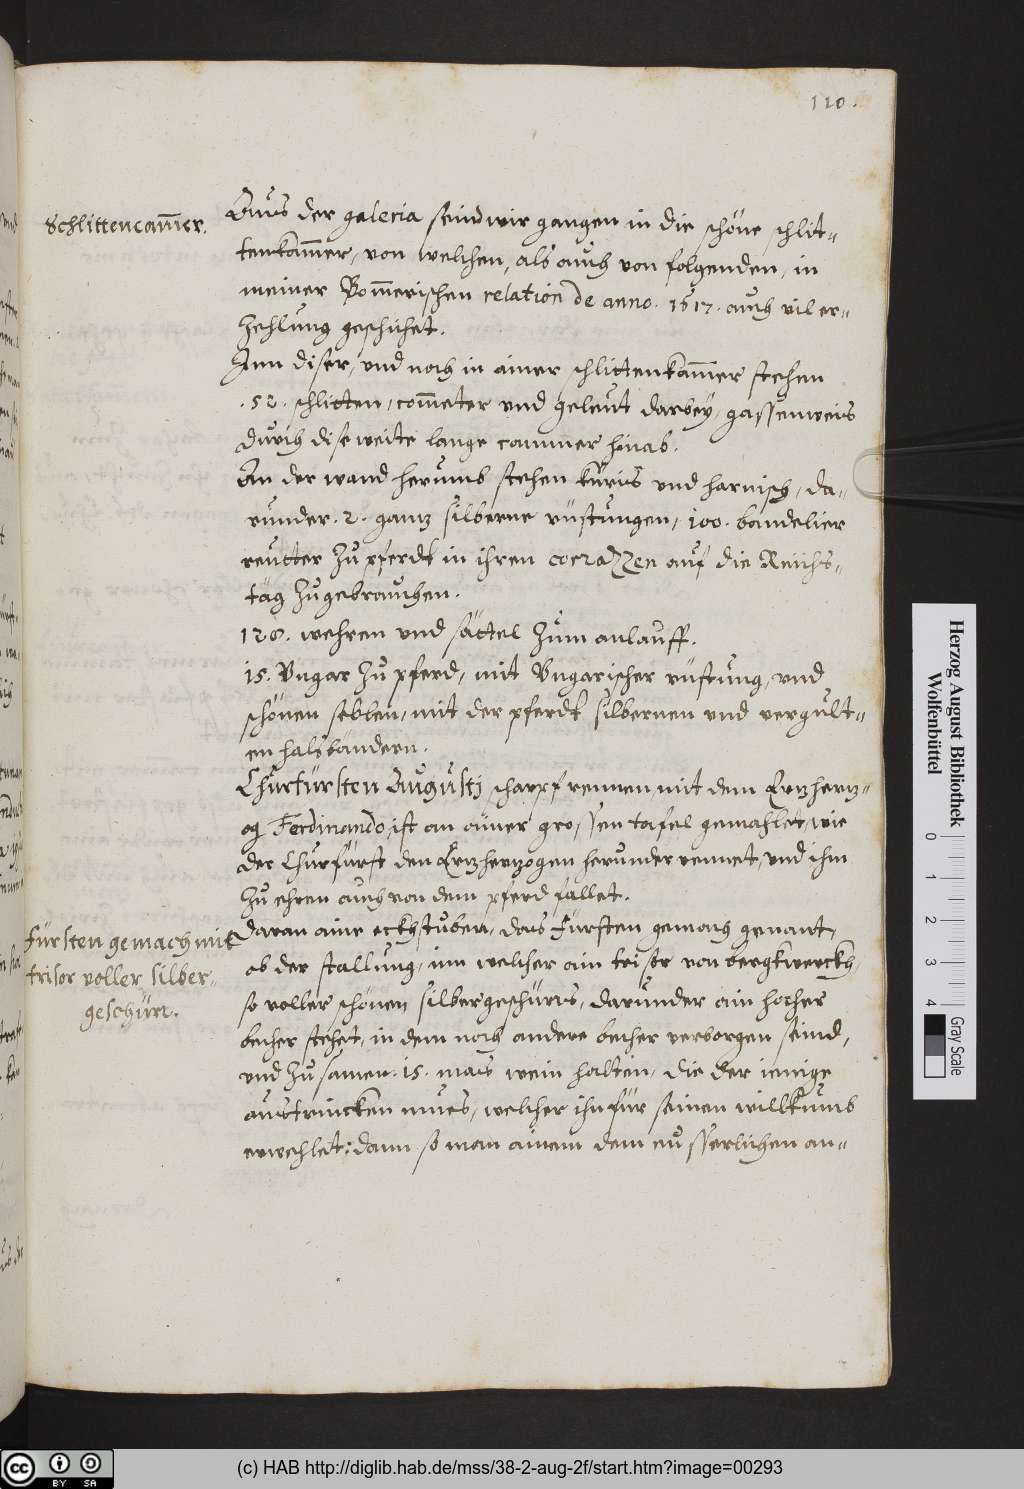 120.
Schlittencam̄er.
Auus der galeria seind wir gangen in die schöne schlit-
tenkam̄er, von welchen, als auch von folgenden, in
meiner Pom̄erischen relation de anno. 1617. auch vil er-
zehlung geschihet.
Inn diser, und noch in ainer schlittenkam̄er stehen
.52. schlitten, com̄eter und geleut darbey, gassenweis
durch dise weite lange cammer hinab.
An der wand herumb stehen küris und harnisch, da-
runder .2. gantz silberne rüstungen, 100. bandelier
reutter zu pferdt in ihren corazzen auf die Reichs-
täg zugebrauchen.
120. wehren und sättel zum anlauff.
15. Ungar zu pferd, mit Ungarischer rüstung, und
schönen seblen, mit der pferdt silbernen und vergult-
en halsbändern.
Churfürsten Augusti scharpf rennen, mit dem Ertzhertz-
og Ferdinando, ist an ainer grossen tafel gemahlet, wie
der Churfürst den Ertzhertzogen herunder rennet, und ihm
zu ehren auch von dem pferd fallet.
Fürsten gemach mit
trisor voller silber-
geschürr.
Daran aine eckhstuben, das Fürsten gemach genant,
ob der stallung, inn welcher ain trisor von bergkwerckh,
so voller schönen silbergeschürrs, darunder ain hocher
becher stehet, in dem noch andere becher verborgen seind,
und zusamen .15. mas wein halten, die der ienige
austrincken mues, welcher ihn für seinen willkumb
erwehlet; dann so man ainem dem eusserlichen an-
Herzog August Bibliothek
Wolfenbüttel
0 1 2 3 4
Gray Scale
cc BY SA
(c) HAB http://diglib.hab.de/mss/38-2-aug-2f/start.htm?image=00293